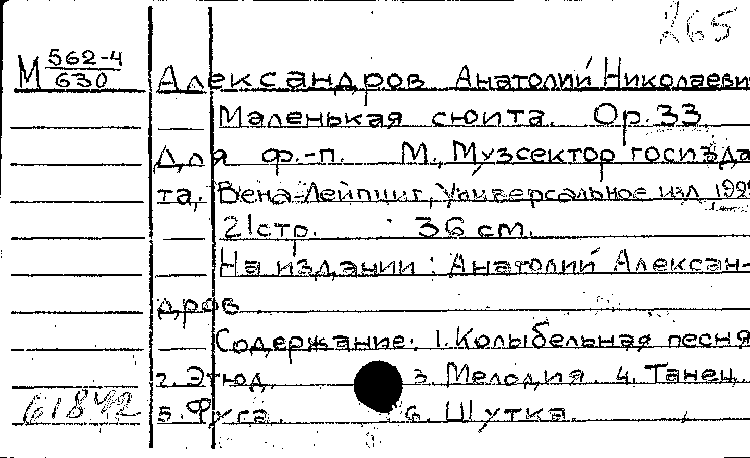 265
М 562-4/630
Александров Анатолий Николаеви
Маленькая сюита. Ор. 33
Для ф.-п. М., Музсектор госизда
та, Вена-Лейпциг, Универсальное изд
21 стр. 36 см.
На издании: Анатолий Алексан-
дров
Содержание: 1. Колыбельная песня
2. Этюд. 3. Мелодия. 4. Танец
61842 5. Фуга. 6. Шутка.